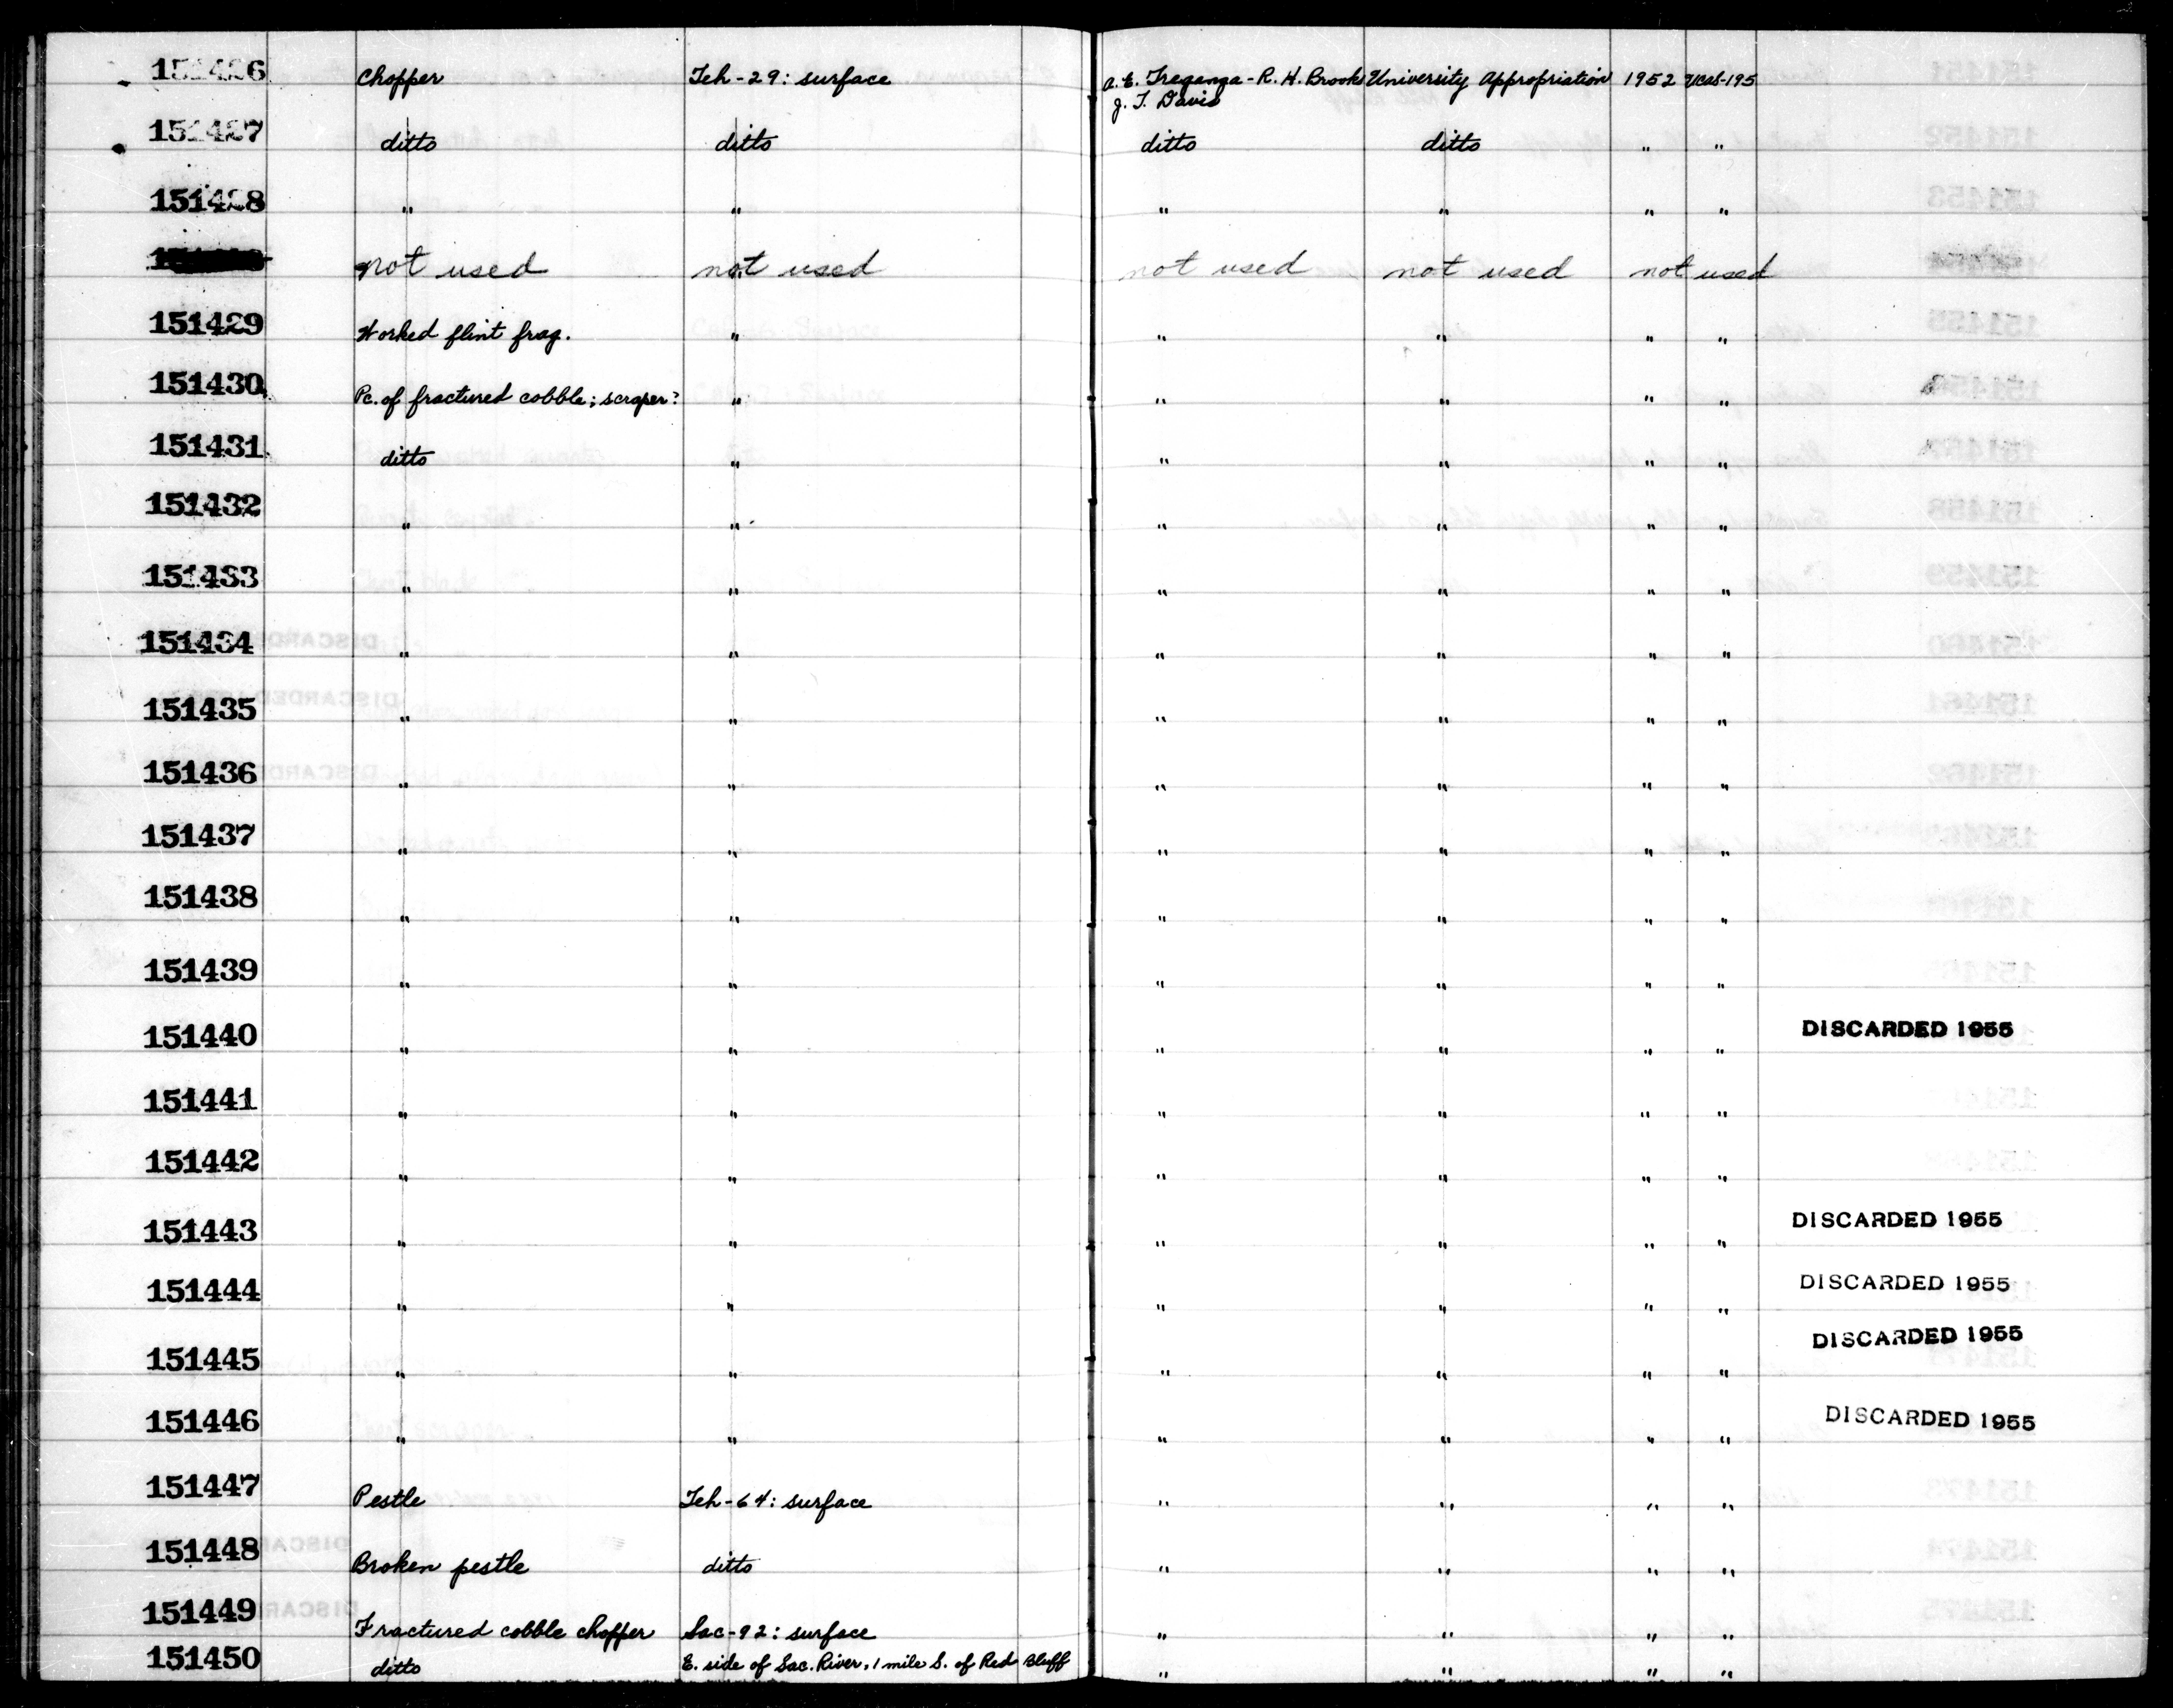 151426 Chopper Teh-29: surface A. E. Treganza - R. H. Brooks University Appropriation 1952 UCAS-195
J. T. Davis
151427 ditto ditto ditto ditto " "
151428 " " " " " "
not used not used not used not used not used
151429 Worked flint frag. " " " " "
151430 Pc. of fractured cobble; scraper? " " " " "
151431 ditto " " " " "
151432 " " " " " "
151433 " " " " " "
151434 " " " " " "
151435 " " " " " "
151436 " " " " " "
151437 " " " " " "
151438 " " " " " "
151439 " " " " " "
151440 " " " " " " DISCARDED 1955
151441 " " " " " "
151442 " " " " " "
151443 " " " " " " DISCARDED 1955
151444 " " " " " " DISCARDED 1955
151445 " " " " " " DISCARDED 1955
151446 " " " " " " DISCARDED 1955
151447 Pestle Teh-64: surface " " " "
151448 Broken pestle ditto " " " "
151449 Fractured cobble chopper Sac-92: surface " " " "
151450 ditto E. side of Sac. River, 1 mile S. of Red Bluff " " " "